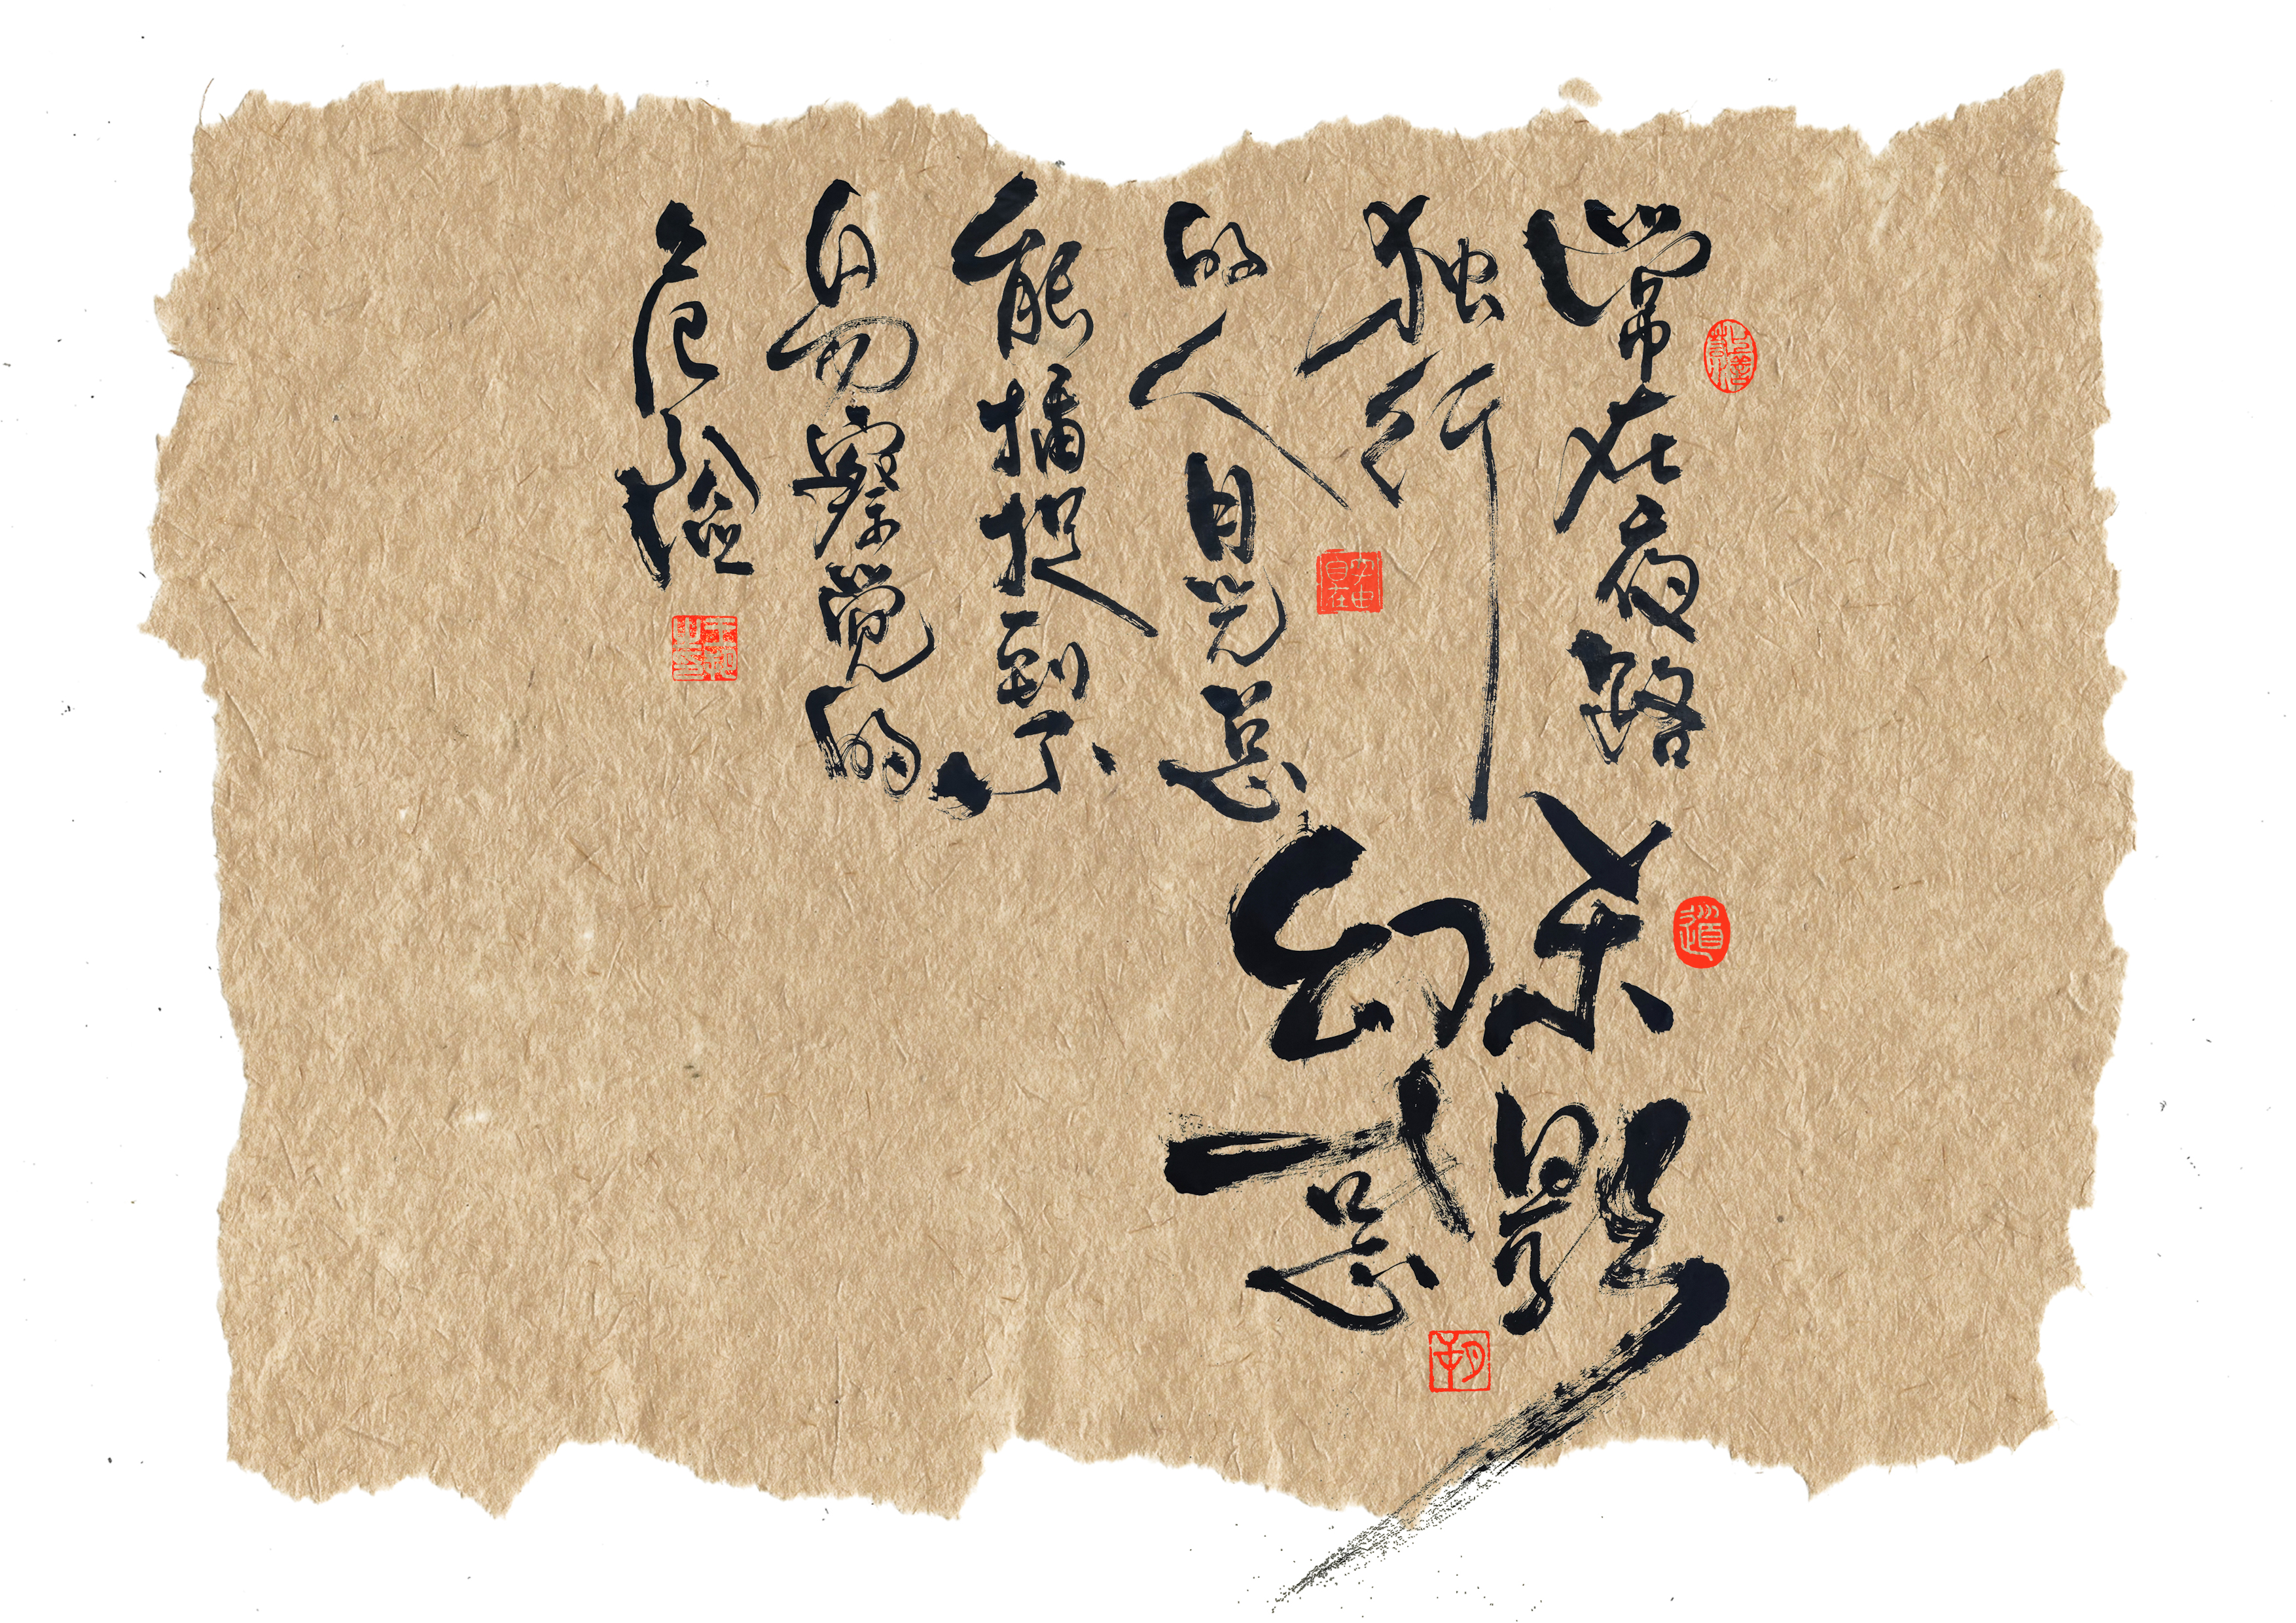 常在夜路
独行
的人目光总
能捕捉到不
易察觉的
危险
杀影
幻惑
道